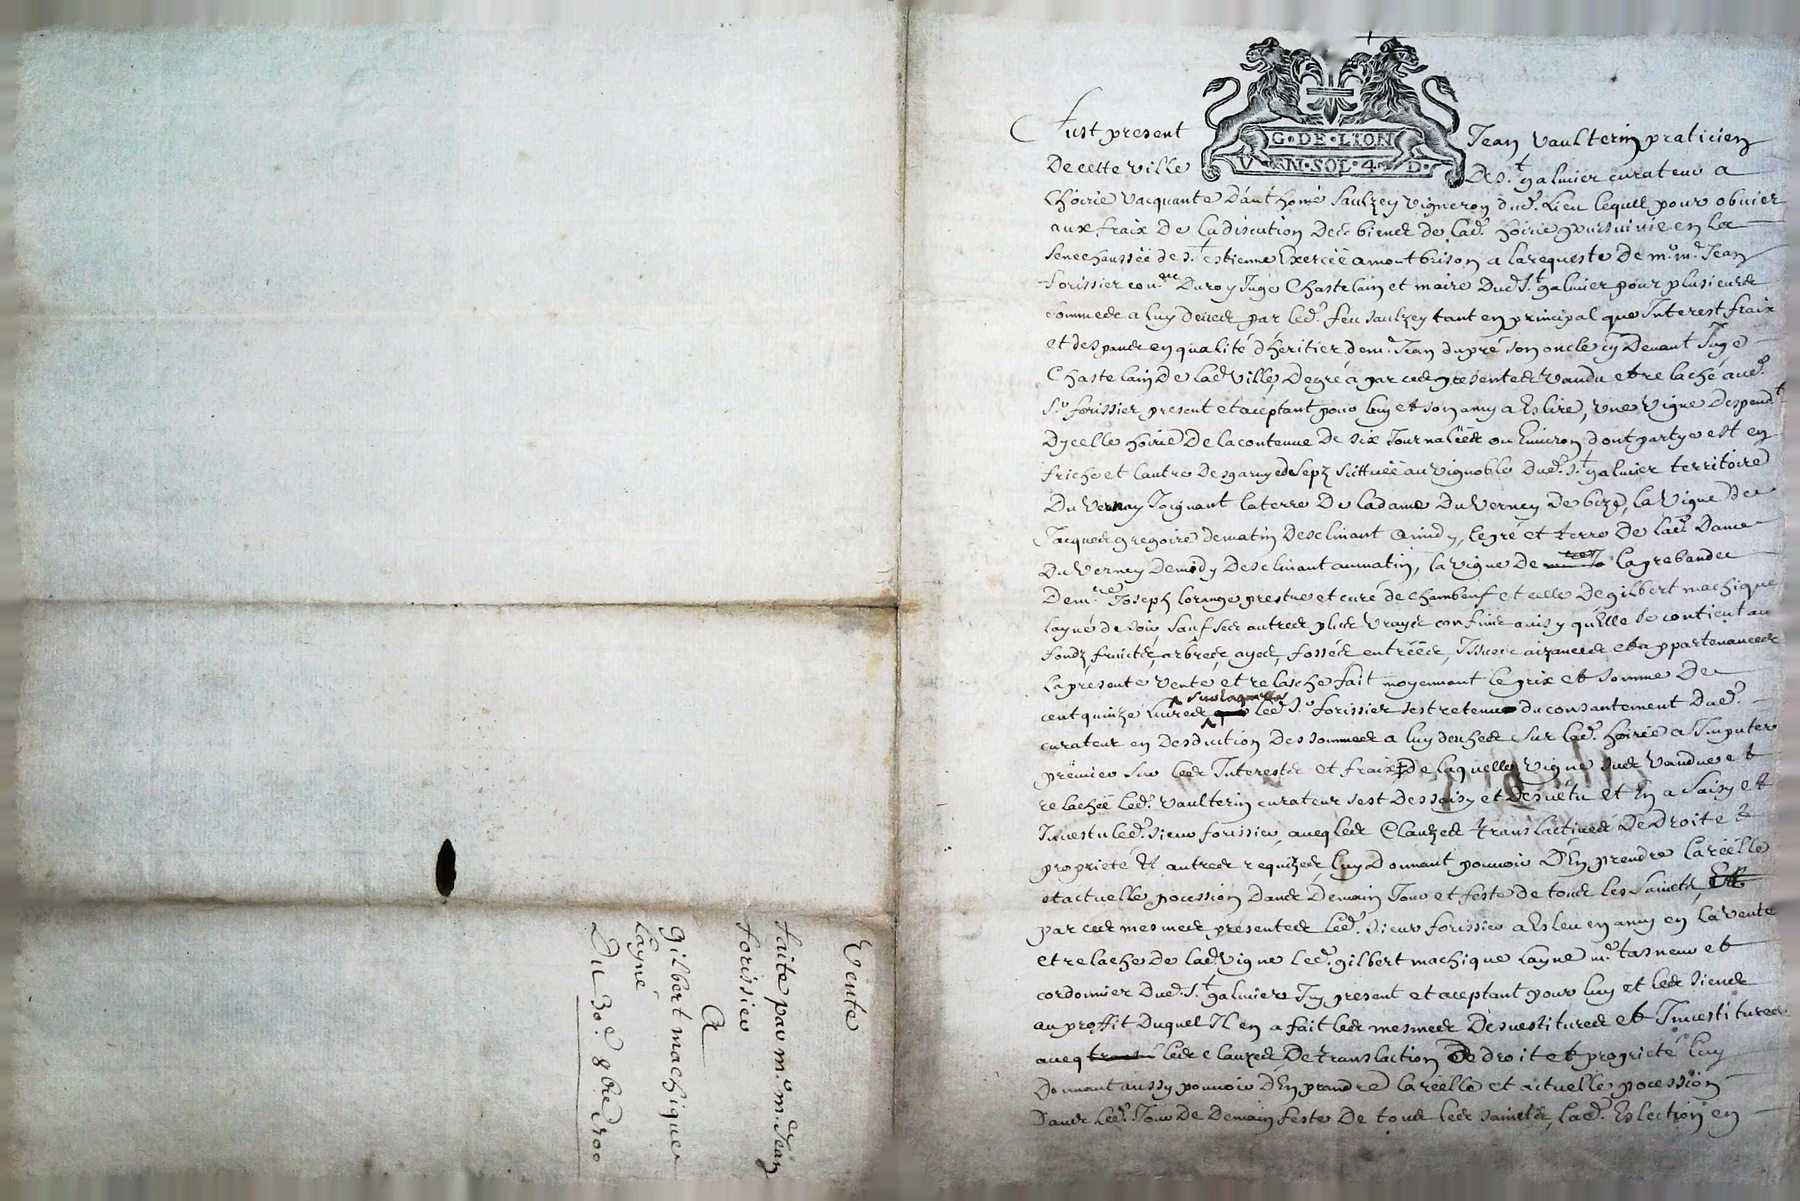 Vente
faite par m.e m.e Jean
forissier
A
gilbert machique
Layné
Du 30.e 8bre 1700
G·DE·LION
VN·SOL·4·D·
Fust present Jean Vaulterin praticien
De cette ville De S.t galmier curateur a
Lhoirie vacquante D'anthoine Saulzey vigneron dud. Lieu lequel pour obvier
aux fraix De La discution Des biens de lad. hoirie poursuivie en la
Senechaussée de S.t estienne Exercée a montbrison a la requeste De m.e m.e Jean
forissier con.er Du roy Juge Chastelain et maire Dud. S.t galmier pour plusieurs
sommes a luy deues par led. feu Saulzey tant en principal que Interest fraix
et despans en qualité d'héritier de m.e Jean dupré son oncle cy Devant Juge
Chastelain De lad. Ville, De gré a par ces presentes vandu et relaché aud.
S.r forissier present et aceptant pour luy et son amy a Eslire, une vigne Despend.t
Dycelle hoirie De la contenue De six Journalées ou Environ dont partye est en
friche et lautre Desgarnye de sepz scittuée au vignoble dud. S.t galmier territoire
Du Vernay Joignant la terre De la dame Du Verney De bize, la vigne De
Jacques gregoire de matin Desclinant a midy, le gré et terre De lad. Dame
Du Verney De midy Desclinant au matin, la vigne de lagrebande
De m.re Joseph lorange prestre et curé de chambeuf et celle De gilbert machique
layné de soir, sauf ses autres plus vrays confins ainsy quelle se contient au
fondz fruicts, arbres, ayes, fossés entrées, Issues aizances et appartenances
La presente vente et relasche fait moyennant le prix et somme De
cent quinze livres sur laquelle led. S.r forissier sest retenu du consantement Dud.
curateur en Desduction Des sommes a luy deuhes sur lad. hoirie a Imputer
premier sur les Interests et fraix De laquelle vigne sus vandue et
relachée led. vaulterin curateur sest Dessaisy et Desvétu et En a saisy et
Investu led. sieur forissier, aveq les Clauzes translactives De Droit et
proprieté et autres requizes, luy Donnant pouvoir D'En prendre la réelle
et actuelle pocession Dans Demain Jour et feste de tous les Saincts,
par ces mesmes présentes led. sieur forissier a Esleu en amy en la vente
et relache De lad. vigne led. gilbert machique layné m.e tasneur et
cordonnier dud. S.t galmier Icy present et aceptant pour luy et les siens
au proffit Duquel Il en a fait les mesmes Desvestitures et Investitures
aveq les clauzes De translaction De droit et proprieté luy
Donnant aussy pouvoir D'En prandre la réelle et actuelle pocession
Dans led. Jour De Demain feste De tous les saincts, lad. Eslection en